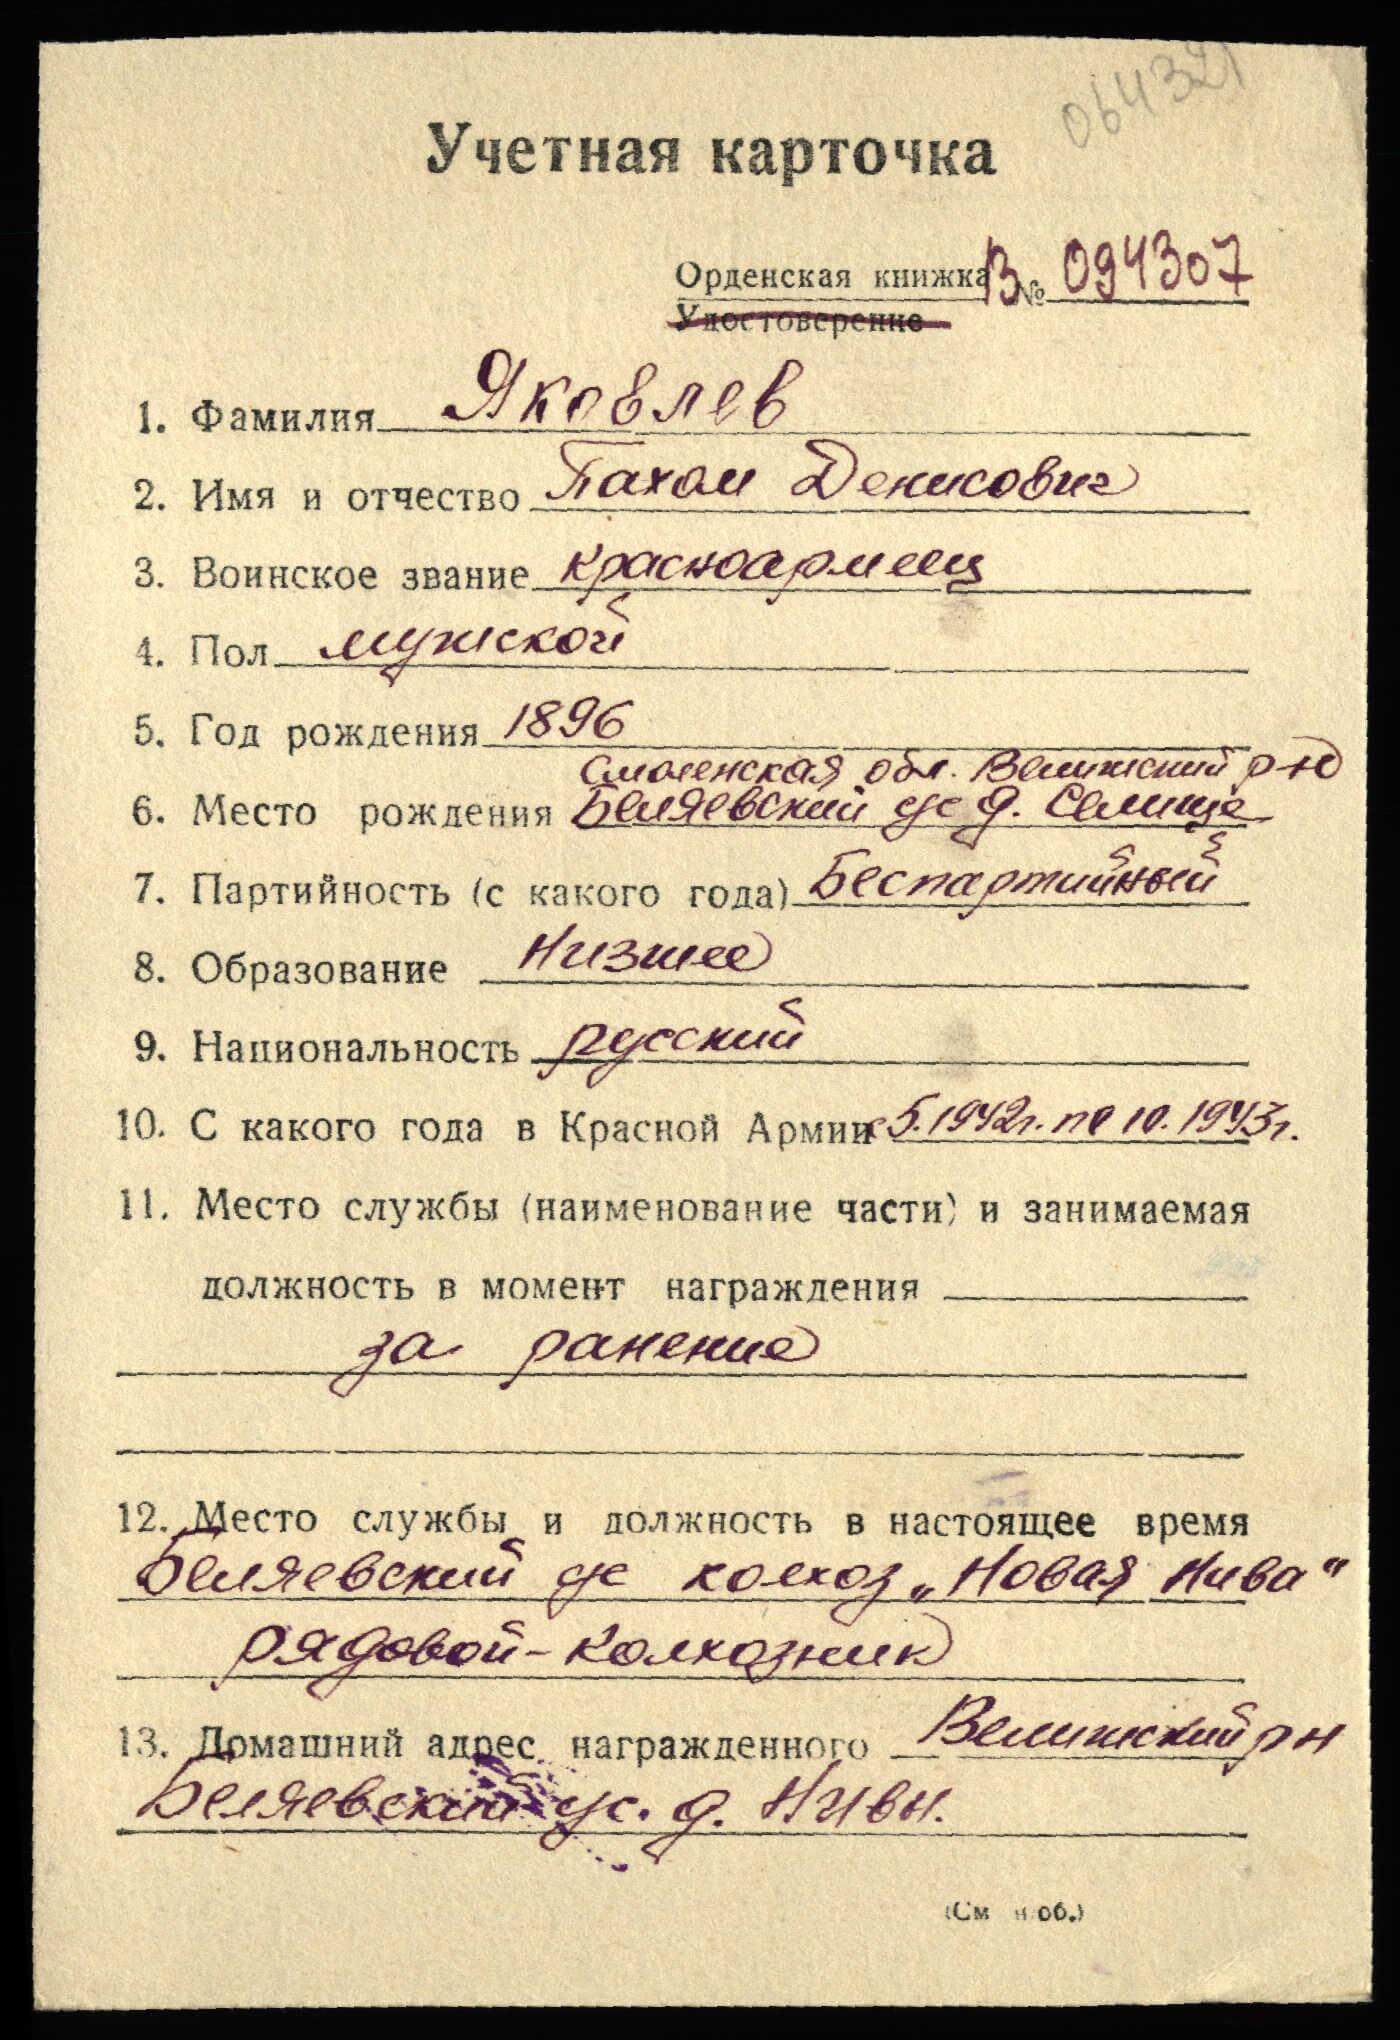 064321
Учетная карточка
Орденская книжка В № 094307
Удостоверение
1. Фамилия Яковлев
2. Имя и отчество Пахом Денисович
3. Воинское звание красноармеец
4. Пол мужской
5. Год рождения 1896
Смоленская обл. Велижский р-н
6. Место рождения Беляевский с/с д. Селище
7. Партийность (с какого года) Беспартийный
8. Образование Низшее
9. Национальность русский
10. С какого года в Красной Армии с 5.1942г. по 10.1943г.
11. Место службы (наименование части) и занимаемая
должность в момент награждения
за ранение
12. Место службы и должность в настоящее время
Беляевский с/с колхоз „Новая Нива"
рядовой - колхозник
13. Домашний адрес награжденного Велижский р н
Беляевский с/с. д. Нивы.
(См н об.)